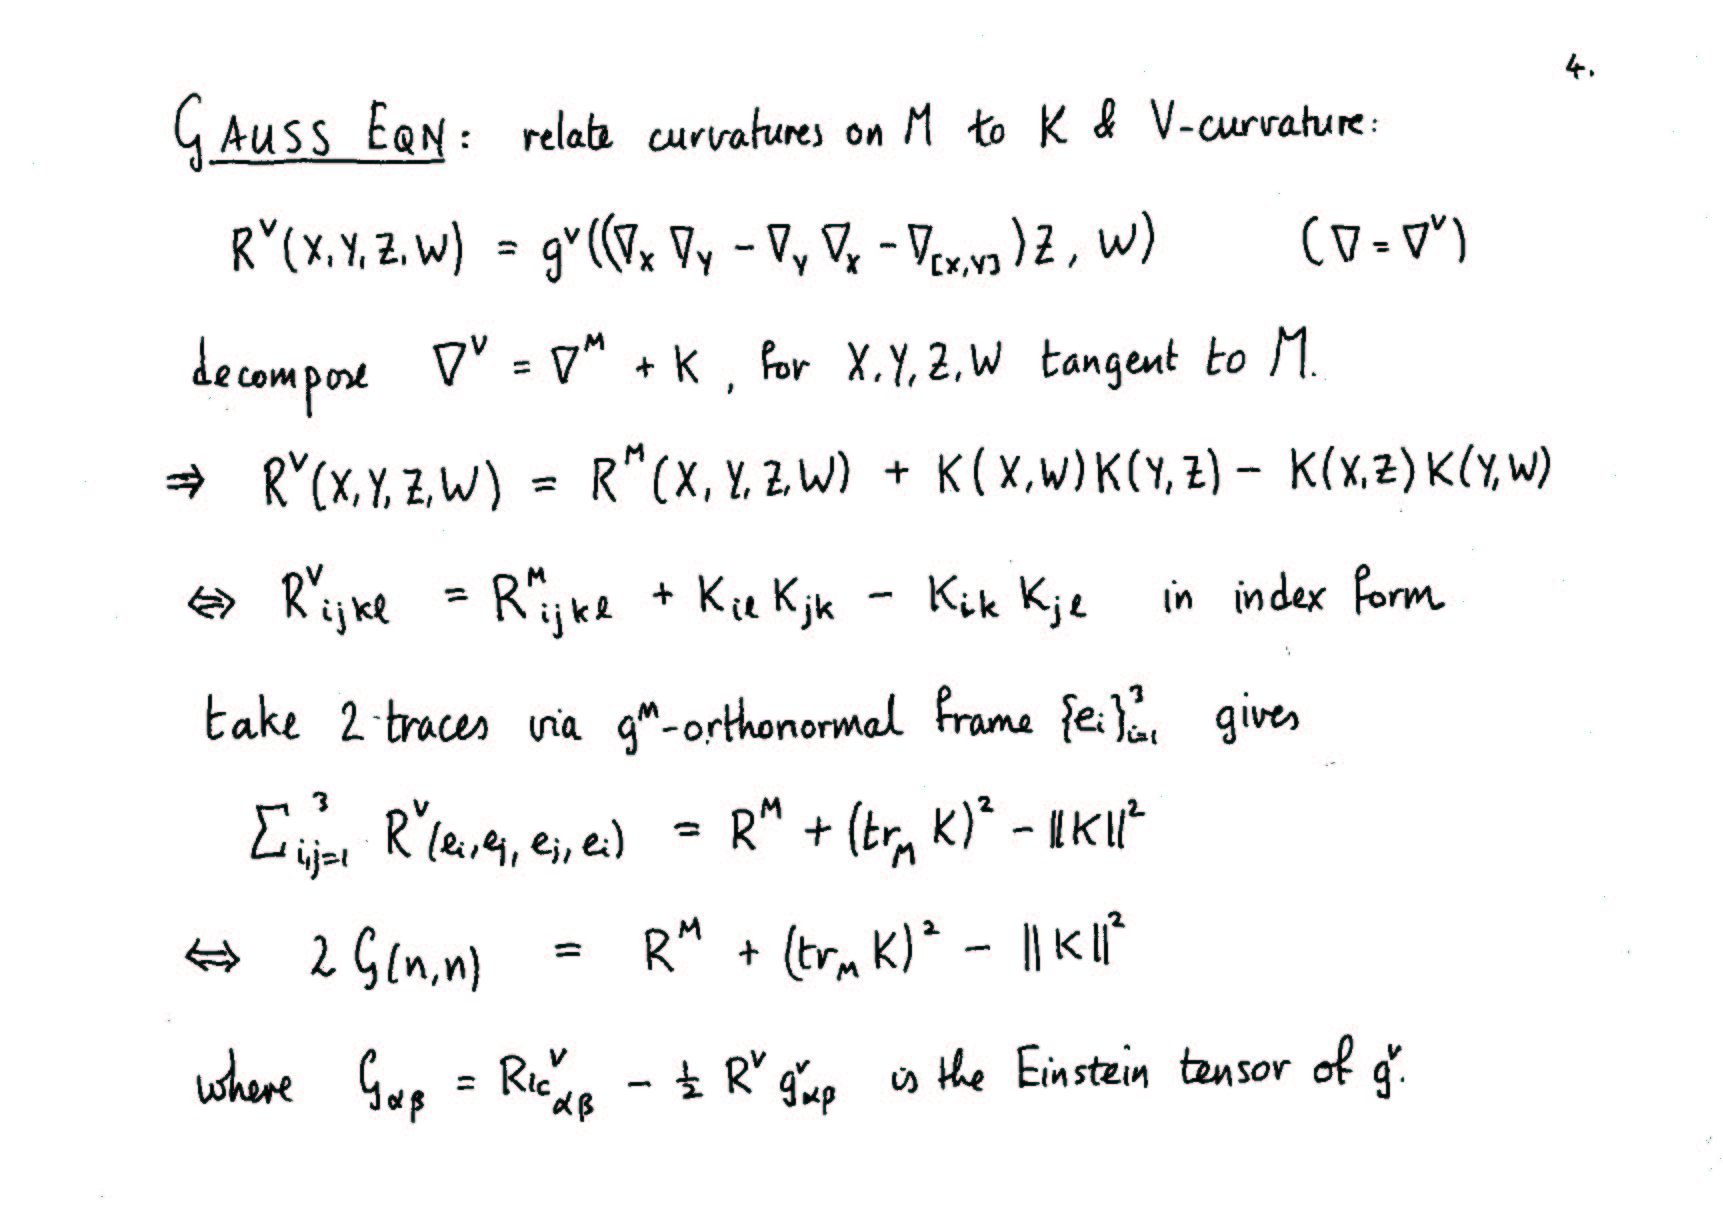 4.
GAUSS EQN: relate curvatures on M to K & V-curvature:
R^V(X,Y,Z,W) = g^V((∇_X ∇_Y - ∇_Y ∇_X - ∇_[X,Y])Z, W) (∇ = ∇^V)
decompose ∇^V = ∇^M + K, for X,Y,Z,W tangent to M.
⇒ R^V(X,Y,Z,W) = R^M(X,Y,Z,W) + K(X,W)K(Y,Z) - K(X,Z)K(Y,W)
⇔ R^V_ijkℓ = R^M_ijkℓ + K_iℓ K_jk - K_ik K_jℓ in index form
take 2 traces via g^M-orthonormal frame {e_i}^3_i=1 gives
∑^3_i,j=1 R^V(e_i,e_j,e_j,e_i) = R^M + (tr_M K)^2 - ||K||^2
⇔ 2 G(n,n) = R^M + (tr_M K)^2 - ||K||^2
where G_αβ = Ric^V_αβ - ½ R^V g^V_αβ is the Einstein tensor of g^V.